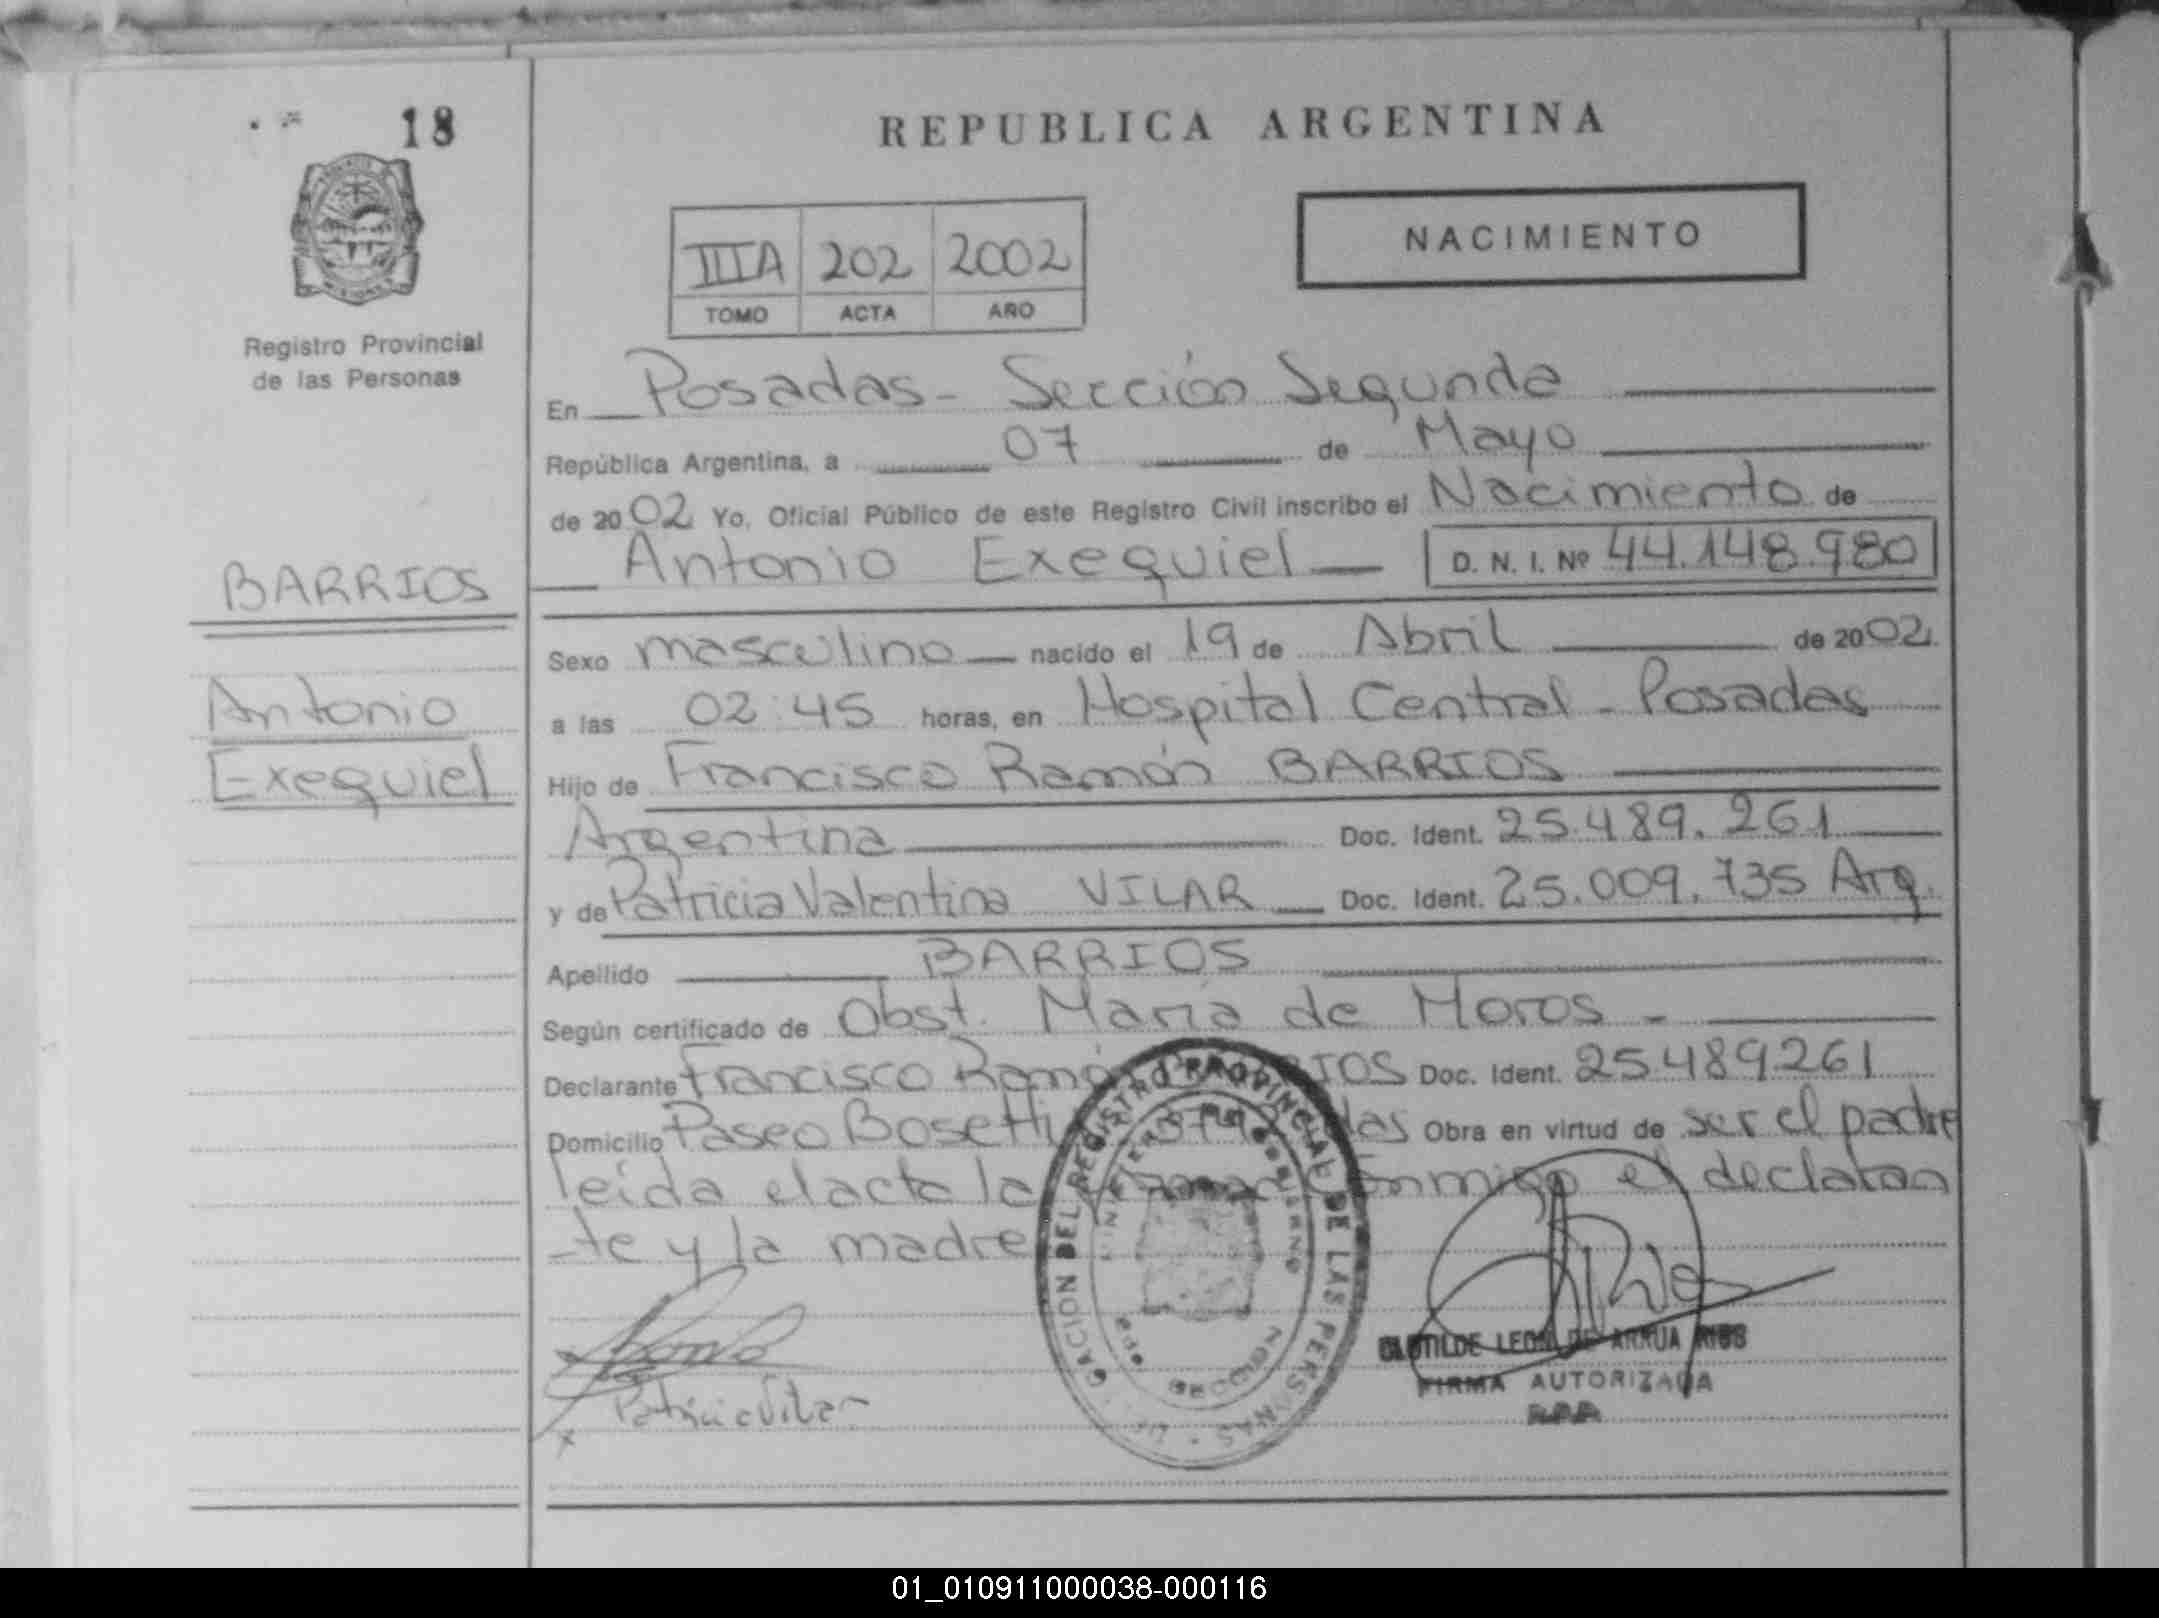 18
REPUBLICA ARGENTINA
NACIMIENTO
IIIA 202 2002
TOMO ACTA AÑO
Registro Provincial
de las Personas
En Posadas - Sección Segunda
República Argentina, a 07 de Mayo
de 2002 Yo, Oficial Público de este Registro Civil inscribo el Nacimiento de
Antonio Exequiel D. N. I. Nº 44.148.980
BARRIOS
Antonio
Exequiel
Sexo masculino nacido el 19 de Abril de 2002.
a las 02:45 horas, en Hospital Central - Posadas
Hijo de Francisco Ramón BARRIOS
Argentina Doc. Ident. 25.489.261
y de Patricia Valentina VILAR Doc. Ident. 25.009.735 Arg.
Apellido BARRIOS
Según certificado de Obst. María de Moros -
Declarante Francisco Doc. Ident. 25.489261
Domicilio Paseo Bosetti Obra en virtud de ser el padre
leida el acta la conmigo el declaran
-te y la madre
REGISTRO PROVINCIAL DE LAS PERSONAS
Patricia Vilar
x
CLOTILDE DE ARRUA RIOS
FIRMA AUTORIZADA
R.P.P.
01_010911000038-000116